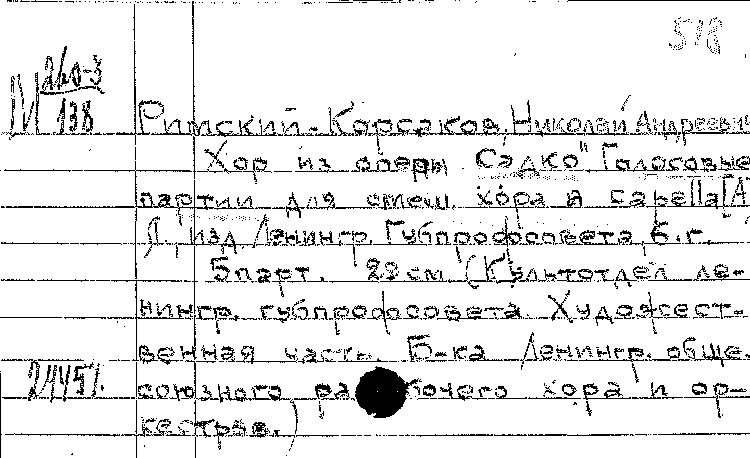 518
М 260-3
138
Римский-Корсаков, Николай Андреевич
Хор из оперы Садко". Голосовые
партии для смеш. хора а capella [А
Л., изд. Ленингр. Губпрофсовета, б. г.
5 парт. 28 см. (Культотдел ле-
нингр. губпрофсовета. Художест-
венная часть. Б-ка Ленингр. обще-
24451. союзного рабочего хора и ор-
кестров.)